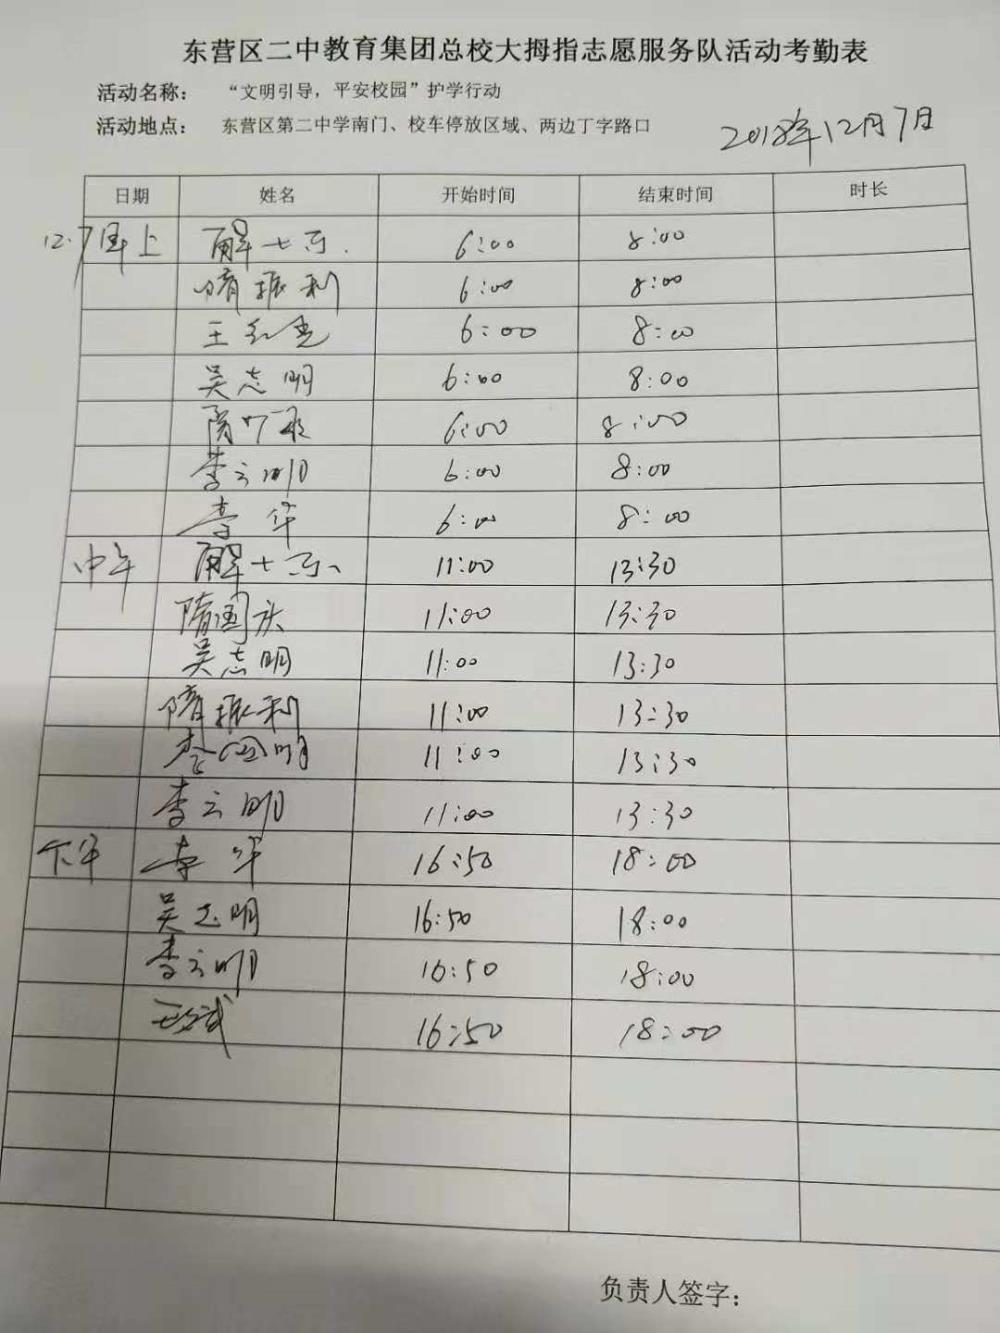 东营区二中教育集团总校大拇指志愿服务队活动考勤表
活动名称： “文明引导，平安校园”护学行动
活动地点： 东营区第二中学南门、校车停放区域、两边丁字路口
2018年12月7日
日期 姓名 开始时间 结束时间 时长
12.7 早上 解 6:00 8:00
隋振利 6:00 8:00
王红 6:00 8:00
吴志明 6:00 8:00
隋 6:00 8:00
李云明 6:00 8:00
李华 6:00 8:00
中午 解 11:00 13:30
隋国庆 11:00 13:30
吴志明 11:00 13:30
隋振利 11:00 13:30
李 明 11:00 13:30
李云明 11:00 13:30
下午 李华 16:50 18:00
吴志明 16:50 18:00
李云明 16:50 18:00
16:50 18:00
负责人签字：